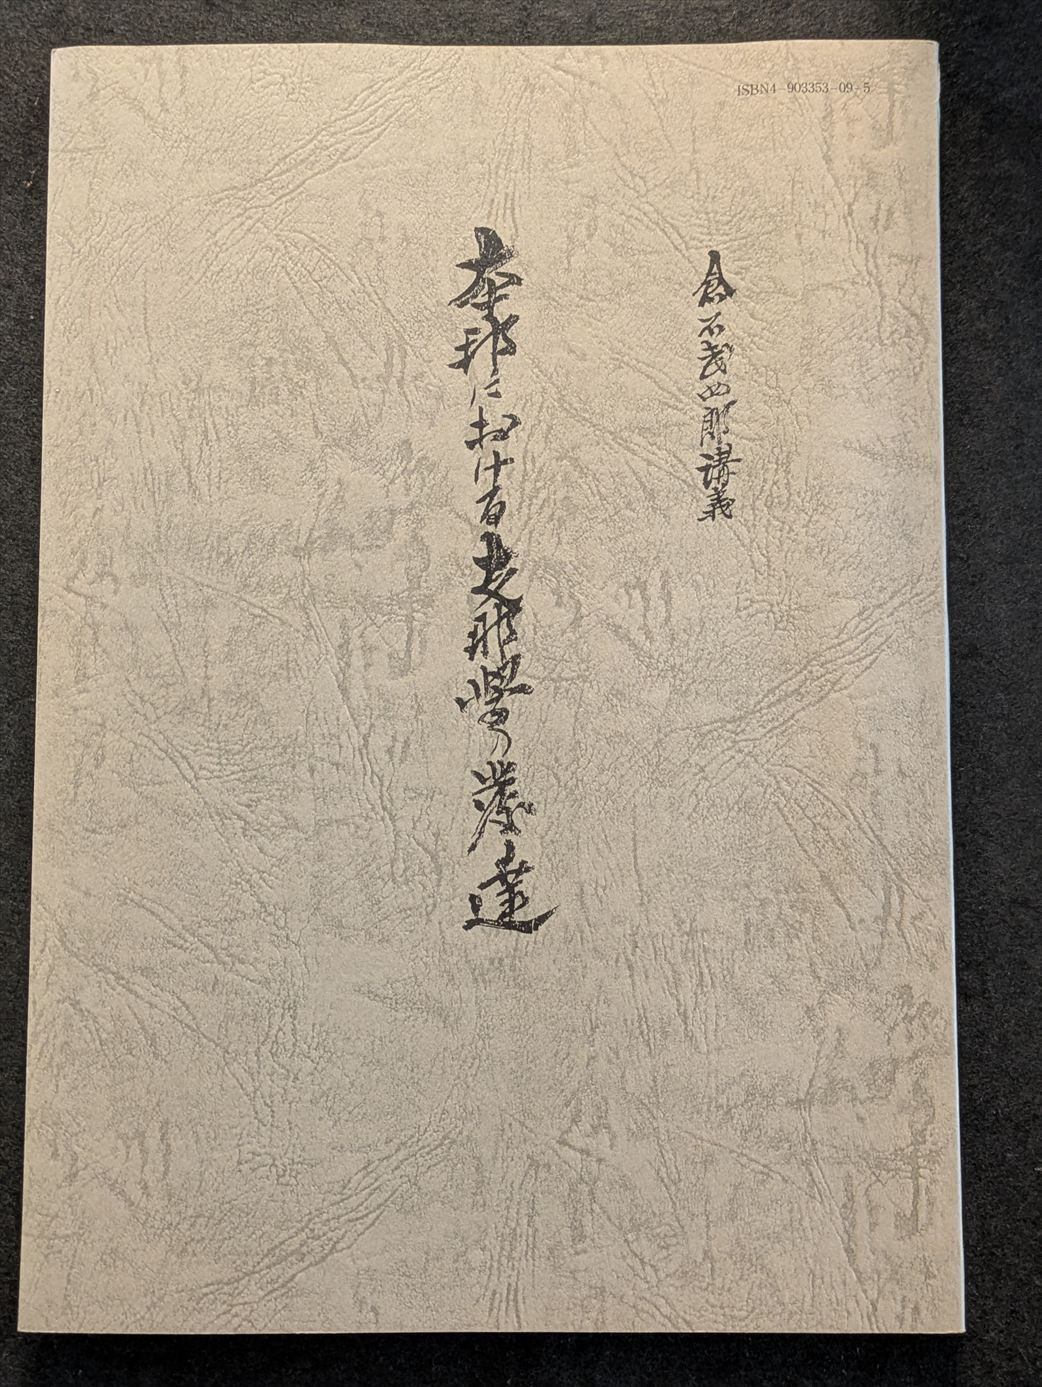 ISBN4-903353-09-5
倉石武四郎講義
本邦における支那學の發達